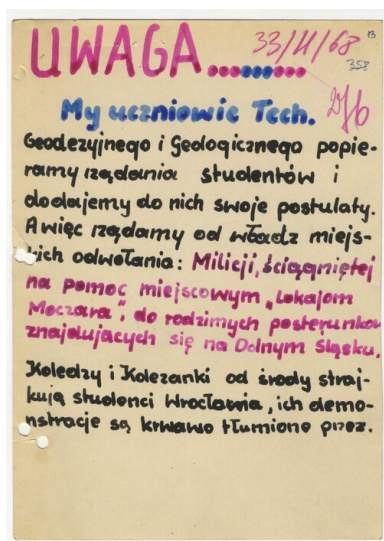 UWAGA.........
33/II/68
13
358
My uczniowie Tech.
Geodezyjnego i Geologicznego popie-
ramy rządania studentów i
dodajemy do nich swoje postulaty.
A więc rządamy od władz miejs-
kich odwołania: Milicji, ściągniętej
na pomoc miejscowym "Lokajom
Moczara", do rodzimych posterunków
znajdujących się na Dolnym Śląsku.
Koledzy i Koleżanki od środy straj-
kują studenci Wrocławia, ich demo-
nstracje są krwawo tłumione przez.